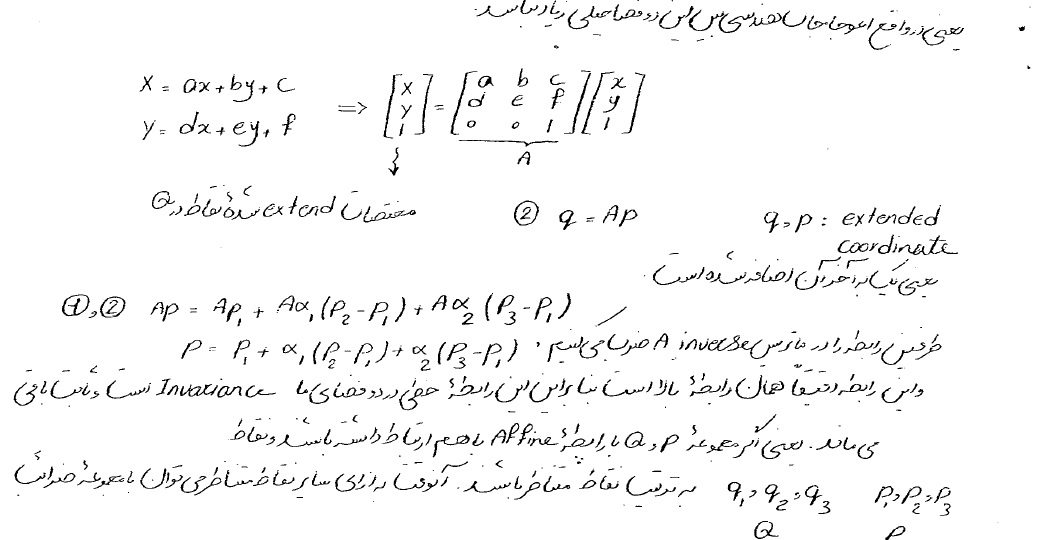 یعنی در واقع اعوجاجات هندسی بین این دو فضا خیلی زیاد نباشد.
X = ax+by+c
Y = dx+ey+f
=> [X Y 1] = [a b c d e f 0 0 1] [x y 1]
A
مختصات extend شدهٔ نقاط در Q
② q = Ap
q, p : extended
coordinate
یعنی یک به آخر آن اضافه شده است.
①,② Ap = Ap₁ + Aα₁(P₂-P₁) + Aα₂(P₃-P₁)
طرفین رابطه را در ماتریس A inverse ضرب می‌کنیم،
P = P₁ + α₁(P₂-P₁) + α₂(P₃-P₁)
و این رابطه دقیقاً همان رابطهٔ بالا است بنابراین این رابطهٔ خطی در دو فضای ما Invariance است و ثابت باقی
می‌ماند. یعنی اگر مجموعهٔ P و Q با رابطهٔ Affine با هم ارتباط داشته باشند و نقاط
P₁,P₂,P₃ q₁,q₂,q₃ به ترتیب نقاط متناظر باشند. آنوقت به ازای سایر نقاط متناظر می‌توان با مجموعه ضرائب
P Q